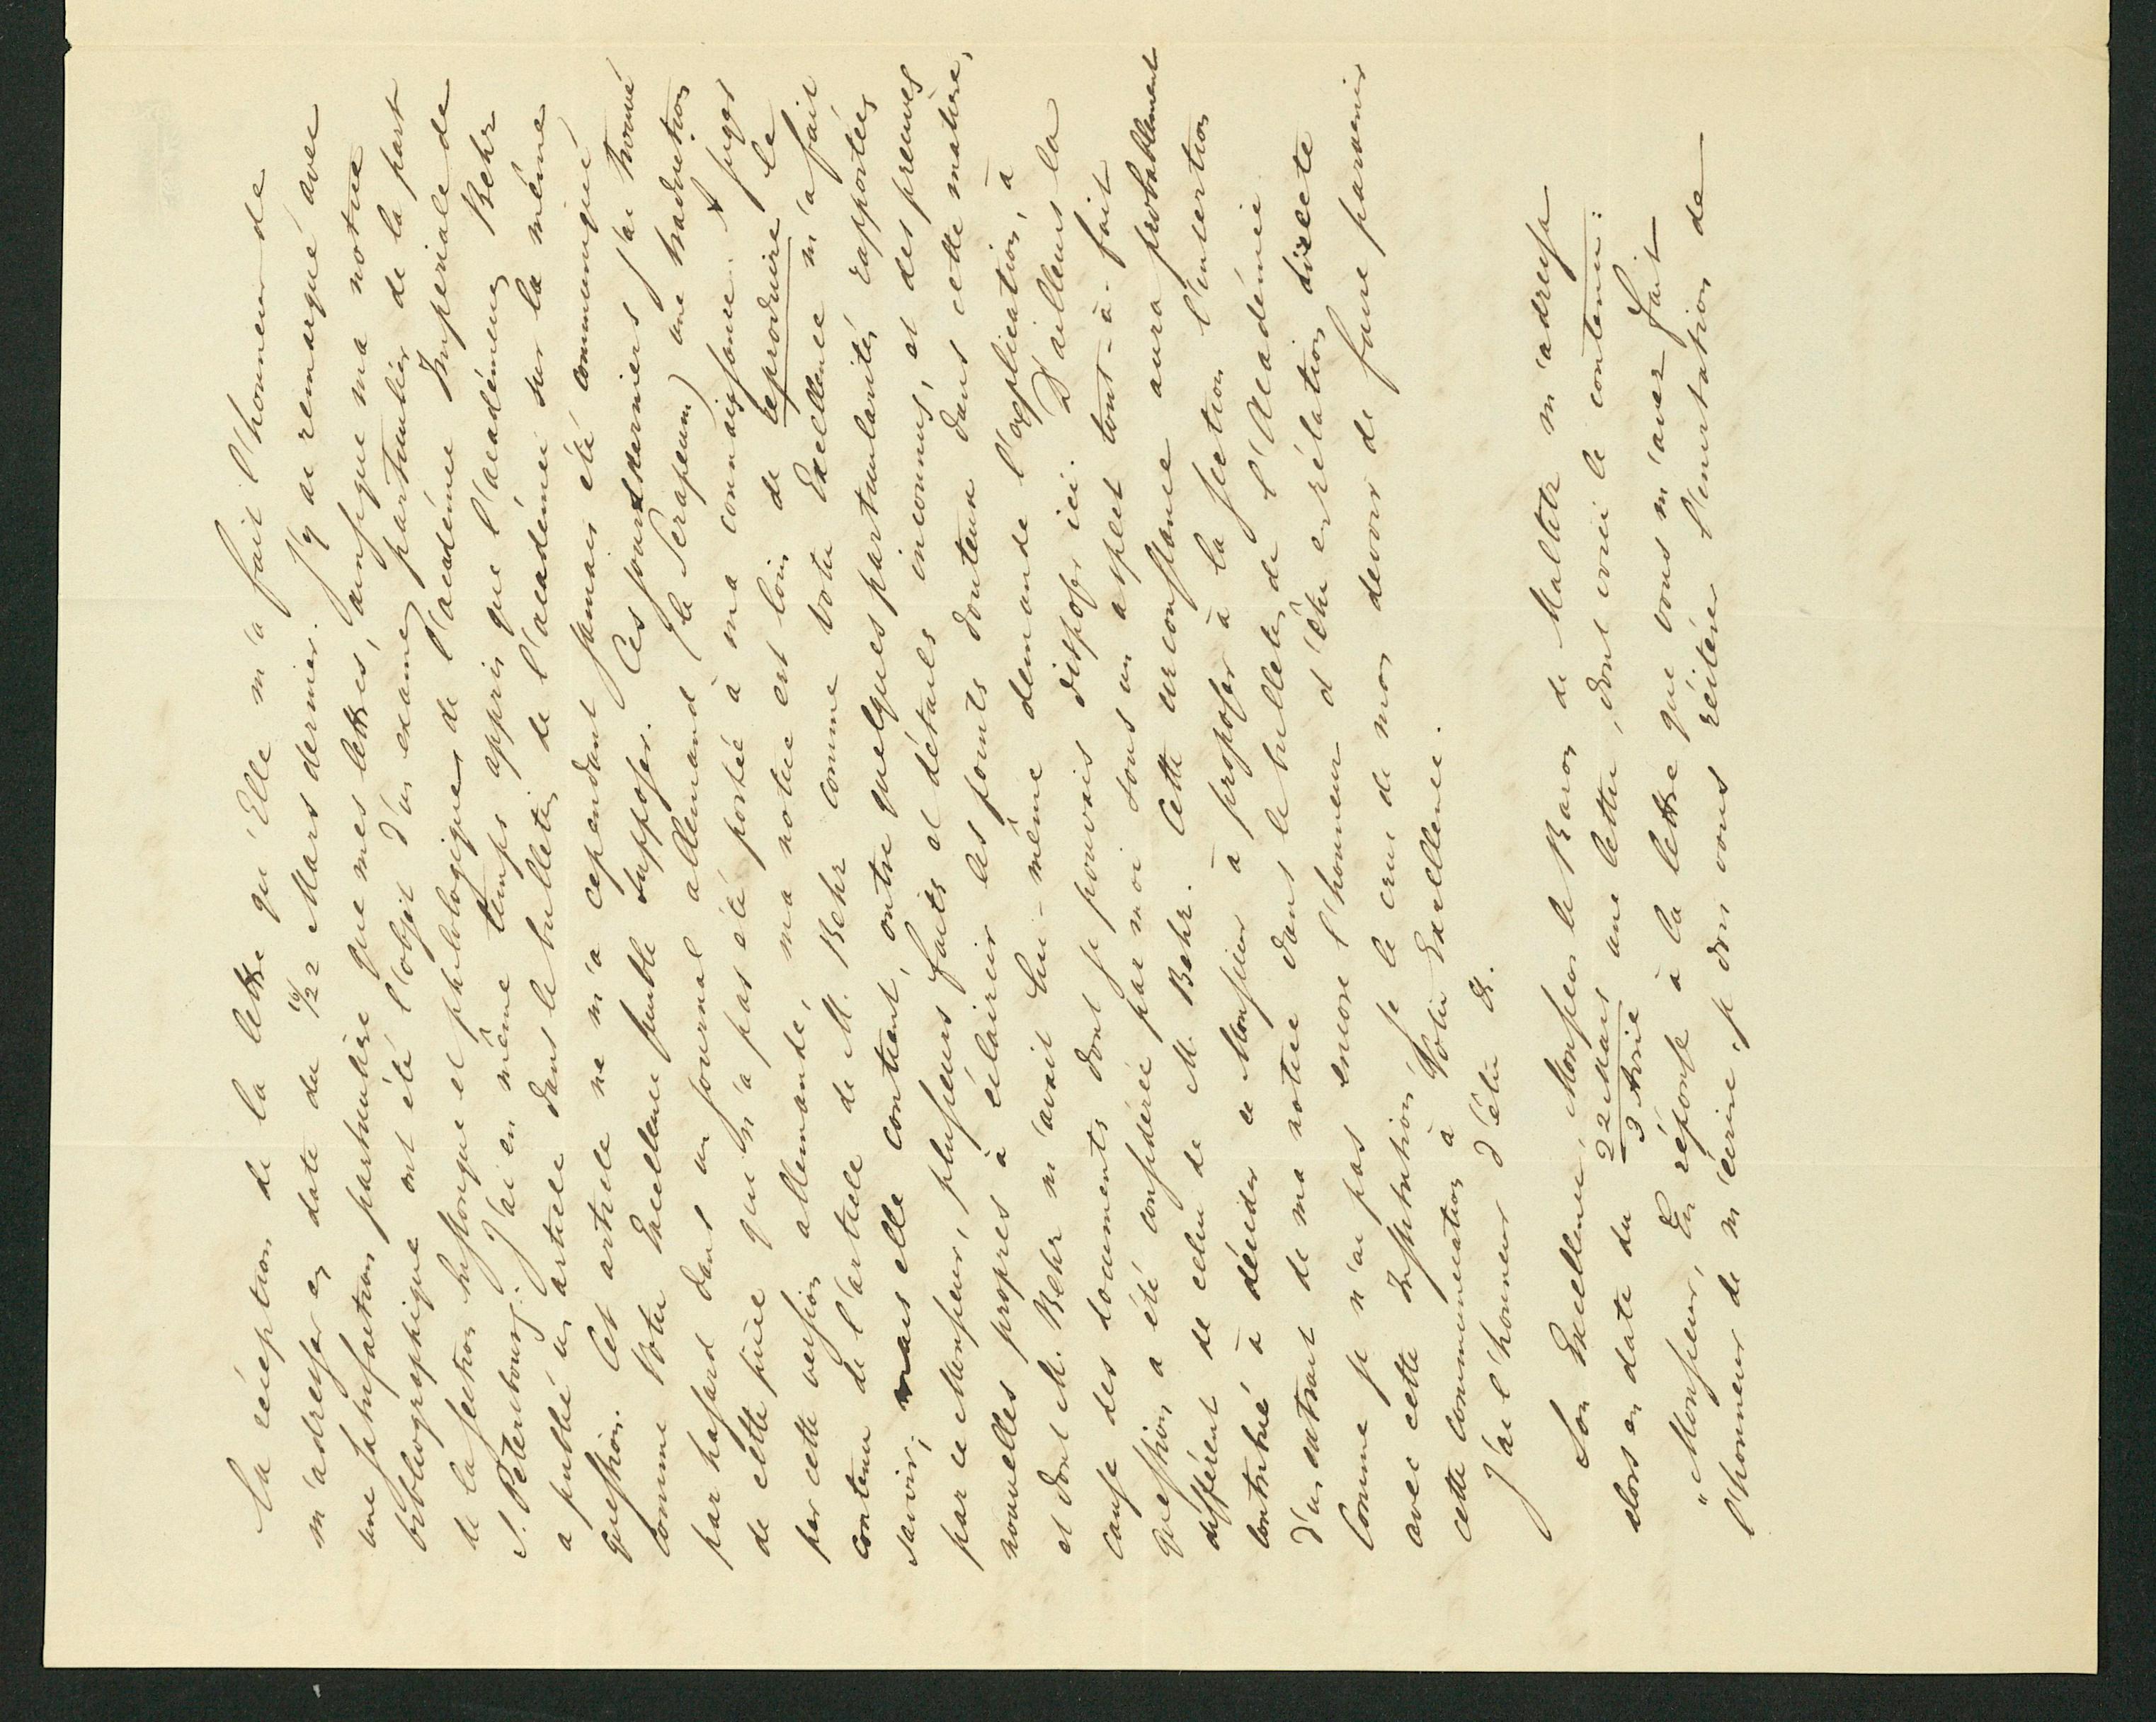 La réception de la lettre qu'Elle m'a fait l'honneur de
m'adresser en date du 10/22 Mars dernier. J'y ai remarqué avec
une satisfaction particulière que mes lettres, ainsi que ma notice
bibliographique ont été l'objet d'un examen particulier de la part
de la section historique et philologique de l'académie Imperiale de
S. Petersbourg. J'ai en même temps appris que l'académicien Behr
a publié un article dans le bulletin de l'académie sur la même
question. Cet article ne m'a cependant jamais été communiqué
comme Votre Excellence semble supposer. Ces jours derniers j'ai trouvé
par hasard dans un journal allemand (le Serapeum) une traduction
de cette pièce qui n'a pas été portée à ma connaissance. A juger
par cette version allemande, ma notice est loin de reproduire le
contenu de l'article de M. Behr comme Votre Excellence m'a fait
savoir; mais elle contient, outre quelques particularités rapportées
par ce Monsieur, plusieurs faits et détails inconnus, et des preuves
nouvelles propres à éclaircir les points douteux dans cette matière,
et dont M. Behr m'avait lui-même demandé l'explication, à
cause des documents dont je pouvais disposer ici. D'ailleurs la
question a été considérée par moi sous un aspect tout-à-fait
différent de celui de M. Behr. Cette circonstance aura probablement
contribué à décider ce Monsieur à proposer à la section l'insertion
d'un extrait de ma notice dans le bulletin de l'Académie.
Comme je n'ai pas encore l'honneur d'être en rélation directe
avec cette Institution, je le crus de mon devoir de faire parvenir
cette communication à Votre Excellence.
J'ai l'honneur d'être &.
Son Excellence, Monsieur le Baron de Maltitz m'adressa
alors en date du 22 Mars / 3 Avril une lettre, dont voici le contenu:
"Monsieur, En réponse à la lettre que vous m'avez fait
l'honneur de m'écrire, je dois vous réitérer l'invitation de